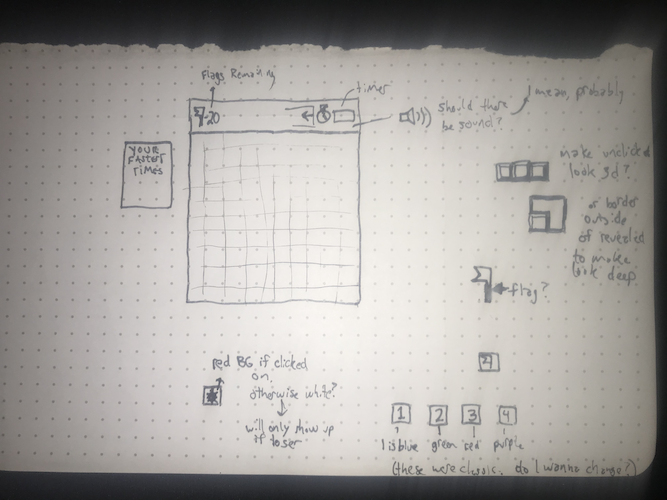 Flags Remaining
timer
I mean, probably
20
Should there
be sound?
YOUR
FASTEST
TIMES
make unclicked
look 3d?
or border
outside
of revealed
to make
look deep
flag?
red BG if clicked
on,
otherwise white?
will only show up
if loser
1 2 3 4
1 is blue green red purple
(these were classic, do I wanna change?)